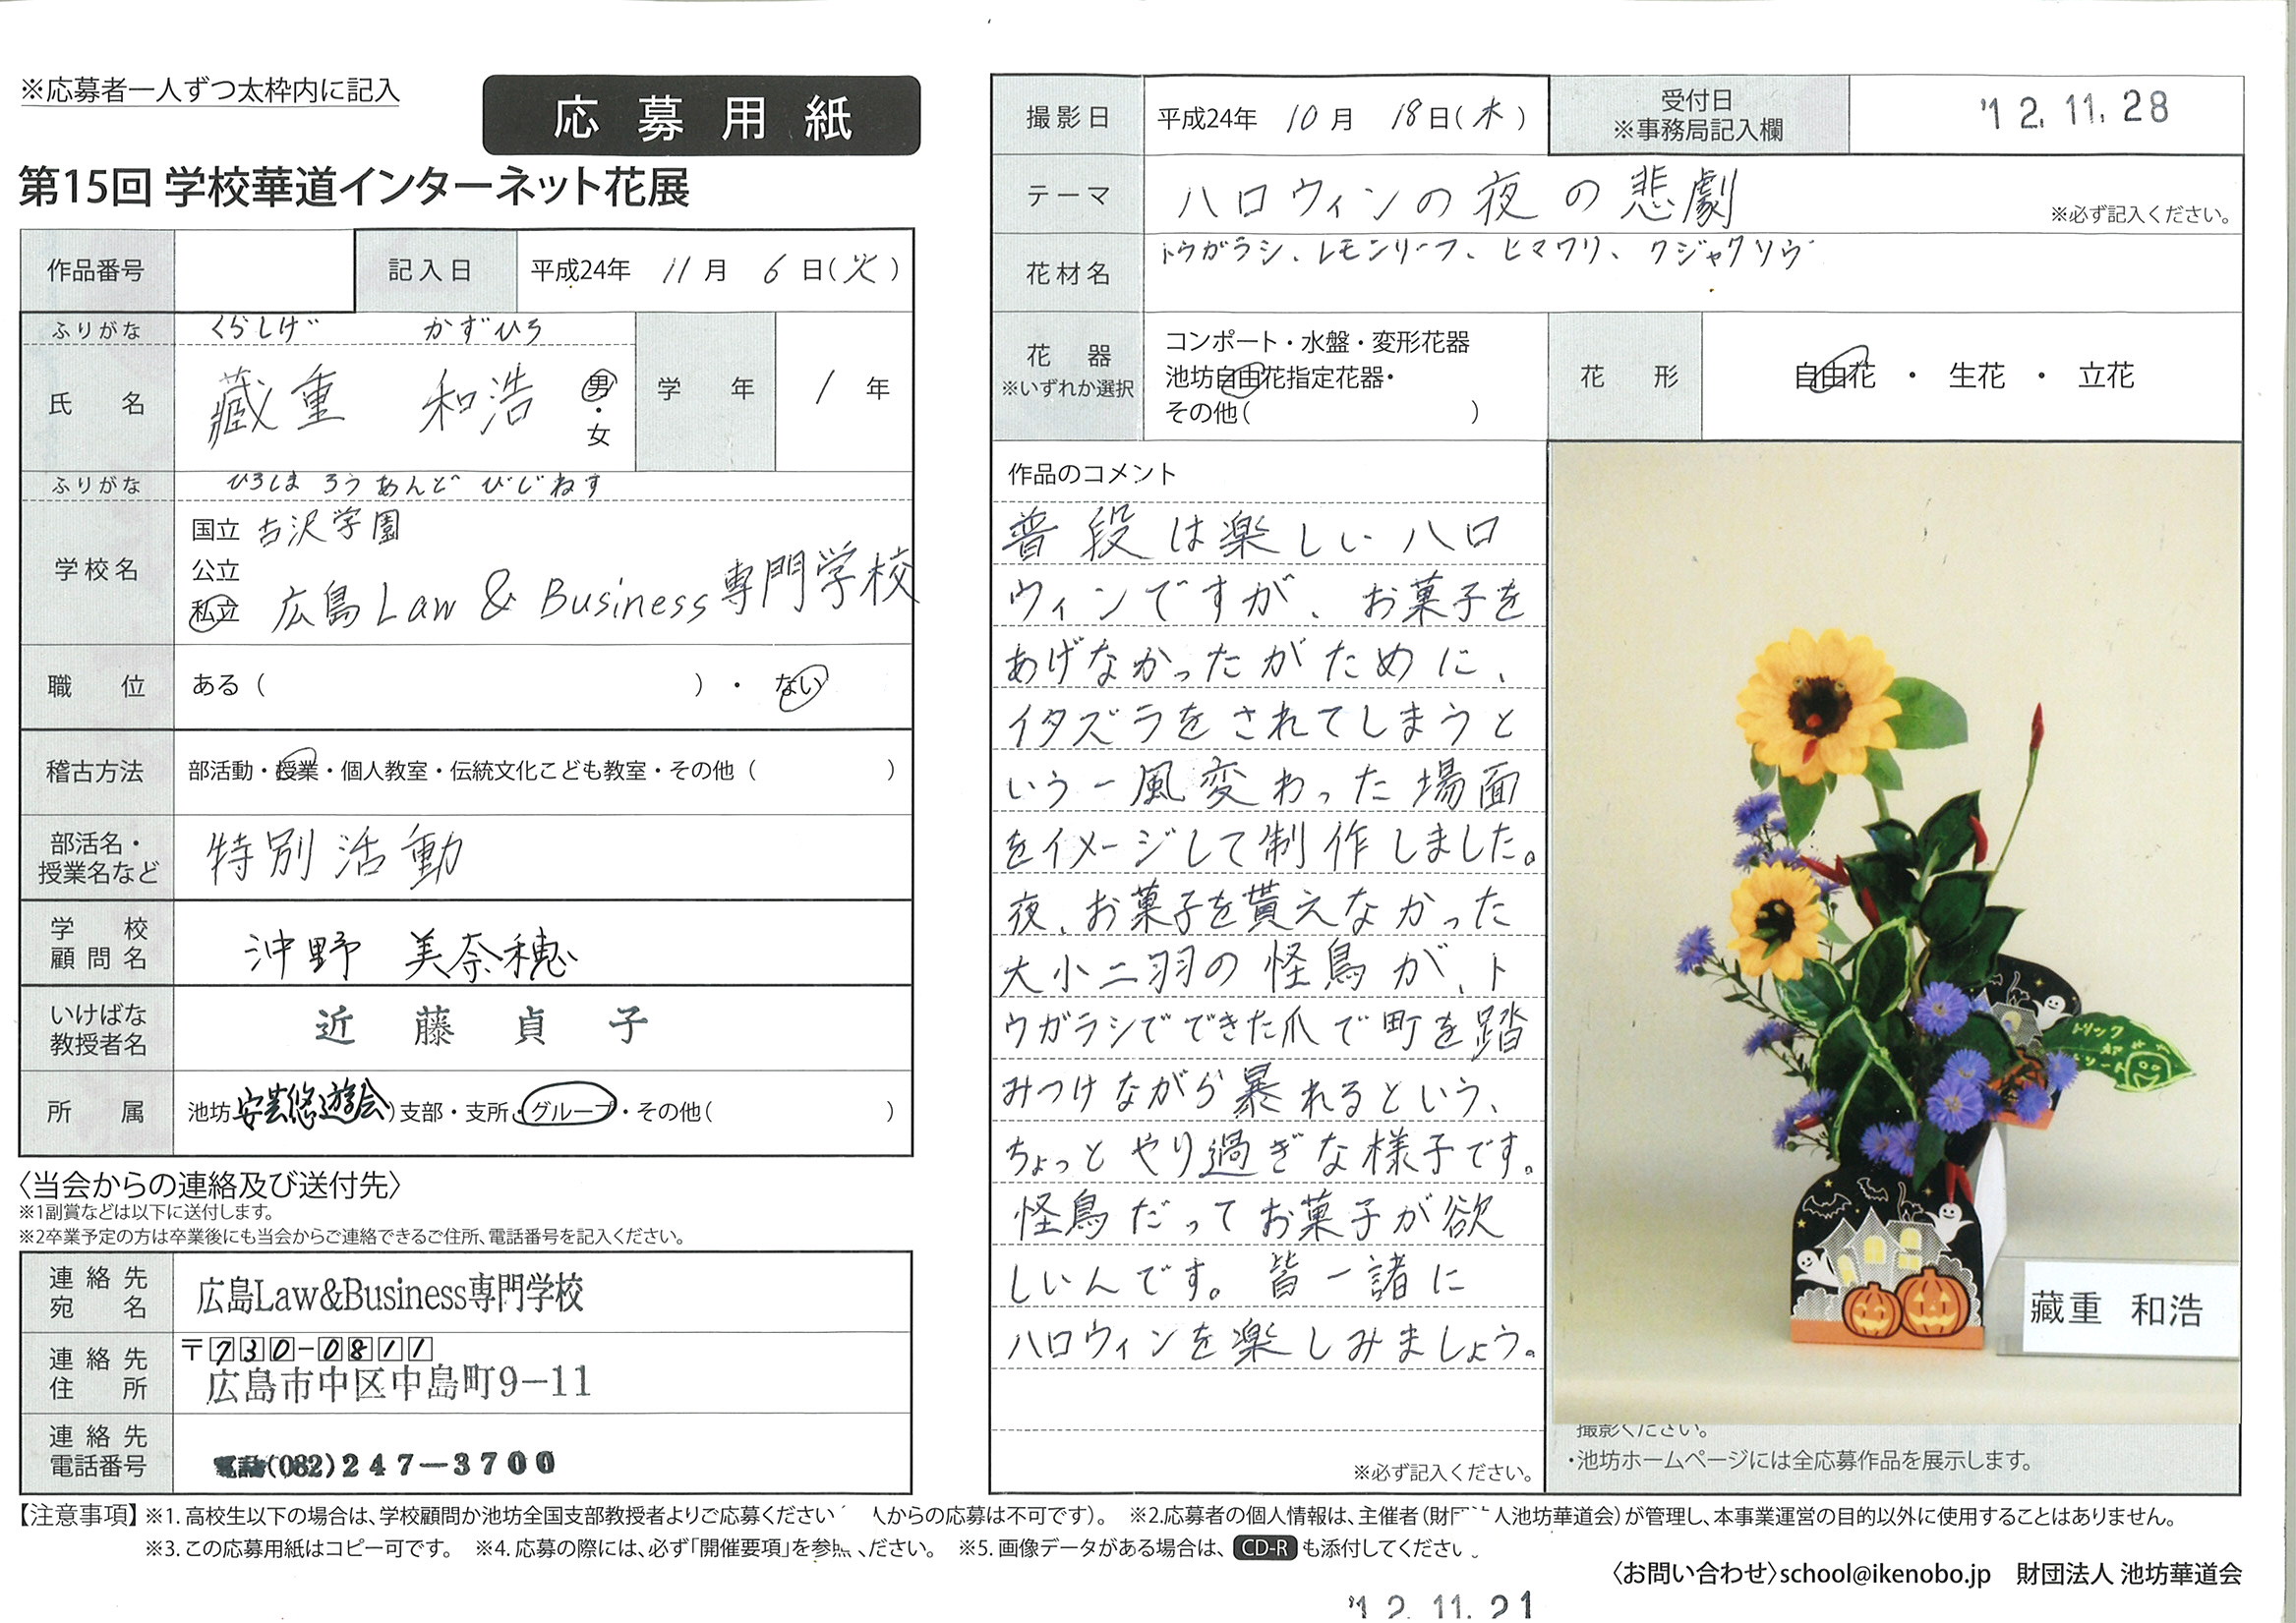 ※応募者一人ずつ太枠内に記入
応募用紙
第15回 学校華道インターネット花展
作品番号
記入日 平成24年 11月 6日(火)
ふりがな くらしげ かずひろ
氏名 藏重 和浩 男・女
学年 1年
ふりがな ひろしま ろう あんど びじねす
学校名 国立 古沢学園
公立
私立 広島 Law & Business 専門学校
職位 ある( )・ ない
稽古方法 部活動・授業・個人教室・伝統文化こども教室・その他( )
部活名・授業名など 特別活動
学校顧問名 沖野 美奈穂
いけばな教授者名 近藤貞子
所属 池坊 安芸悠遊会)支部・支所・グループ・その他( )
〈当会からの連絡及び送付先〉
※1副賞などは以下に送付します。
※2卒業予定の方は卒業後にも当会からご連絡できるご住所、電話番号を記入ください。
連絡先宛名 広島Law&Business専門学校
連絡先住所 〒730-0811
広島市中区中島町9−11
連絡先電話番号 電話(082)247−3700
撮影日 平成24年 10月 18日(木)
受付日
※事務局記入欄
'12.11.28
テーマ ハロウィンの夜の悲劇
※必ず記入ください。
花材名 トウガラシ、レモンリーフ、ヒマワリ、クジャクソウ
花器
※いずれか選択
コンポート・水盤・変形花器
池坊自由花指定花器・
その他( )
花形 自由花 ・ 生花 ・ 立花
作品のコメント
普段は楽しいハロ
ウィンですが、お菓子を
あげなかったがために、
イタズラをされてしまうと
いう一風変わった場面
をイメージして制作しました。
夜、お菓子を貰えなかった
大小二羽の怪鳥が、ト
ウガラシでできた爪で町を踏
みつけながら暴れるという、
ちょっとやり過ぎな様子です。
怪鳥だってお菓子が欲
しいんです。皆一諸に
ハロウィンを楽しみましょう。
※必ず記入ください。
トリック
藏重 和浩
撮影ください。
・池坊ホームページには全応募作品を展示します。
【注意事項】※1.高校生以下の場合は、学校顧問か池坊全国支部教授者よりご応募ください 人からの応募は不可です)。 ※2.応募者の個人情報は、主催者(財団 人池坊華道会)が管理し、本事業運営の目的以外に使用することはありません。
※3.この応募用紙はコピー可です。 ※4.応募の際には、必ず「開催要項」を参照ください。 ※5.画像データがある場合は、CD-Rも添付してください。
〈お問い合わせ〉school@ikenobo.jp 財団法人 池坊華道会
'12.11.21